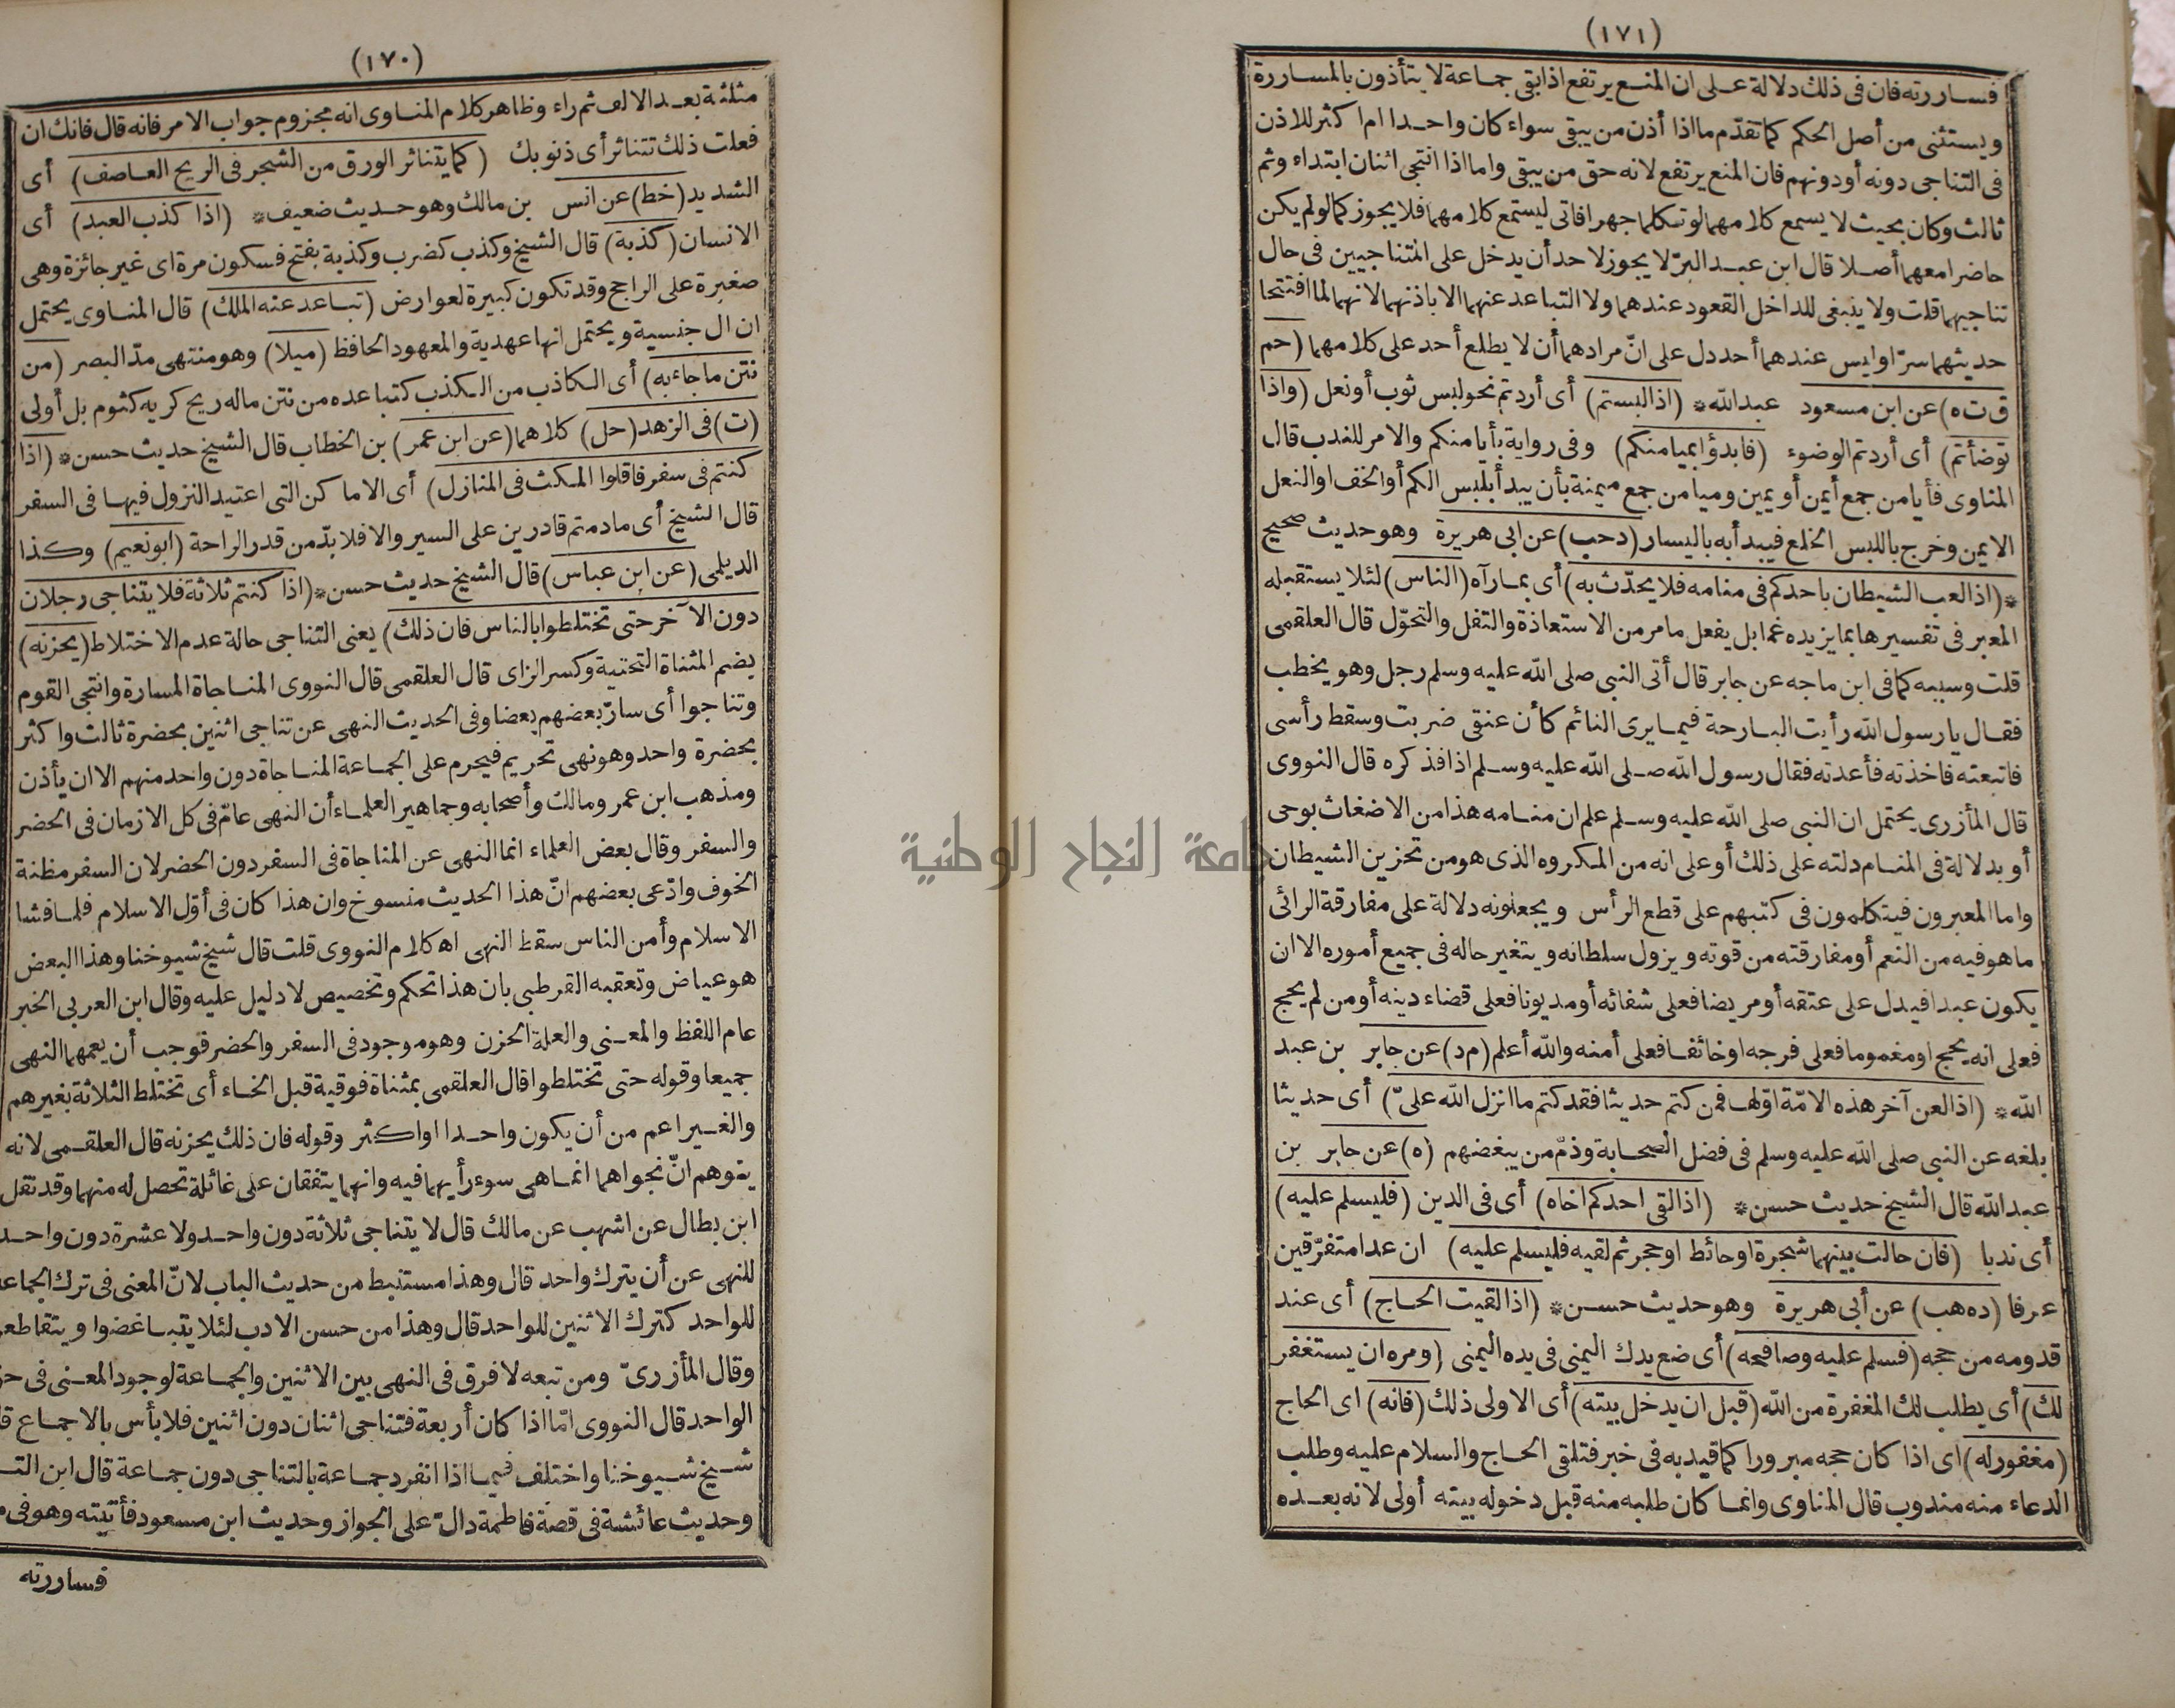 (١٧٠)
مثلثة بعد الالف ثم راء وظاهر كلام المناوى انه مجزوم جواب الامر فانه قال فانك ان
فعلت ذلك تتناثر أى ذنوبك (كما يتناثر الورق من الشجر فى الريح العاصف) أى
الشديد (خط) عن انس بن مالك وهو حديث ضعيف * (اذا كذب العبد) أى
الانسان (كذبة) قال الشيخ وكذب كضرب وكذبة بفتح فسكون مرة اى غير جائزة وهى
صغيرة على الراجح وقد تكون كبيرة لعوارض (تباعد عنه الملك) قال المناوى يحتمل
ان ال جنسية ويحتمل انها عهدية والمعهود الحافظ (ميلا) وهو منتهى مدّ البصر (من
نتن ما جاء به) أى الكاذب من الكذب كتباعده من نتن ماله ريح كريه كثوم بل أولى
(ت) فى الزهد (حل) كلاهما (عن ابن عمر) بن الخطاب قال الشيخ حديث حسن * (اذا
كنتم فى سفر فاقلوا المكث فى المنازل) أى الاماكن التى اعتيد النزول فيها فى السفر
قال الشيخ أى مادمتم قادرين على السير والا فلا بدّ من قدر الراحة (ابو نعيم) وكذا
الديلمى (عن ابن عباس) قال الشيخ حديث حسن * (اذا كنتم ثلاثة فلا يتناجى رجلان
دون الآخر حتى تختلطوا بالناس فان ذلك) يعنى التناجى حالة عدم الاختلاط (يحزنه)
بضم المثناة التحتية وكسر الزاى قال العلقمى قال النووى المناجاة المسارة وانتجى القوم
وتناجوا أى سارّ بعضهم بعضا وفى الحديث النهى عن تناجى اثنين بحضرة ثالث واكثر
بحضرة واحد وهو نهى تحريم فيحرم على الجماعة المناجاة دون واحد منهم الا ان يأذن
ومذهب ابن عمر ومالك وأصحابه وجماهير العلماء أن النهى عامّ فى كل الازمان فى الحضر
والسفر وقال بعض العلماء انما النهى عن المناجاة فى السفر دون الحضر لان السفر مظنة
الخوف وادّعى بعضهم انّ هذا الحديث منسوخ وان هذا كان فى أوّل الاسلام فلما فشا
الاسلام وأمن الناس سقط النهى اه كلام النووى قلت قال شيخ شيوخنا وهذا البعض
هو عياض وتعقبه القرطبى بان هذا تحكم وتخصيص لا دليل عليه وقال ابن العربى الخبر
عام اللفظ والمعنى والعلة الحزن وهو موجود فى السفر والحضر فوجب أن يعمهما النهى
جميعا وقوله حتى تختلطوا قال العلقمى بمثناة فوقية قبل الخاء أى تختلط الثلاثة بغيرهم
والغير اعم من أن يكون واحدا او اكثر وقوله فان ذلك يحزنه قال العلقمى لانه
يتوهم انّ نجواهما انما هى سوء رأيهما فيه وانهما يتفقان على غائلة تحصل له منهما وقد نقل
ابن بطال عن اشهب عن مالك قال لا يتناجى ثلاثة دون واحد ولا عشرة دون واحد
للنهى عن أن يترك واحد قال وهذا مستنبط من حديث الباب لانّ المعنى فى ترك الجماعة
للواحد كترك الاثنين للواحد قال وهذا من حسن الادب لئلا يتباغضوا ويتقاطعوا
وقال المأزرىّ ومن تبعه لا فرق فى النهى بين الاثنين والجماعة لوجود المعنى فى
الواحد قال النووى امّا اذا كان أربعة فتناجى اثنان دون اثنين فلا بأس بالاجماع
شيخ شيوخنا واختلف فيما اذا انفرد جماعة بالتناجى دون جماعة قال ابن
وحديث عائشة فى قصة فاطمة دالّ على الجواز وحديث ابن مسعود فأتيته وهو فى
فساررته
(١٧١)
فساررته فان فى ذلك دلالة على ان المنع يرتفع اذا بقى جماعة لا يتأذون بالمساررة
ويستثنى من أصل الحكم كما تقدّم ما اذا أذن من يبقى سواء كان واحدا ام اكثر للاذن
فى التناجى دونه أو دونهم فان المنع يرتفع لانه حق من يبقى واما اذا انتجى اثنان ابتداء وثم
ثالث وكان بحيث لا يسمع كلامهما لو تكلما جهرا فاتى ليستمع كلامهما فلا يجوز كما لو لم يكن
حاضرا معهما أصلا قال ابن عبد البرّ لا يجوز لاحد أن يدخل على المتناجيين فى حال
تناجيهما قلت ولا ينبغى للداخل القعود عندهما ولا التباعد عنهما الا باذنهما لانهما لما افتتحا
حديثهما سرّا وليس عندهما أحد دل على انّ مرادهما أن لا يطلع أحد على كلامهما (حم
ق ت ه) عن ابن مسعود عبد الله * (اذا لبستم) أى أردتم نحو لبس ثوب أو نعل (واذا
توضأتم) أى أردتم الوضوء (فابدؤا بميامنكم) وفى رواية بأيامنكم والامر للندب قال
المناوى فأيامن جمع أيمن أو يمين وميامن جمع ميمنة بأن يبدأ بلبس الكم أو الخف او النعل
الايمن وخرج باللبس الخلع فيبدأ به باليسار (د حب) عن ابى هريرة وهو حديث صحيح
* (اذا لعب الشيطان باحدكم فى منامه فلا يحدّث به) أى بما رآه (الناس) لئلا يستقبله
المعبر فى تفسيرها بما يزيده غما بل يفعل ما مر من الاستعاذة والتفل والتحوّل قال العلقمى
قلت وسببه كما فى ابن ماجه عن جابر قال أتى النبى صلى الله عليه وسلم رجل وهو يخطب
فقال يا رسول الله رأيت البارحة فيما يرى النائم كأن عنقى ضربت وسقط رأسى
فاتبعته فاخذته فأعدته فقال رسول الله صلى الله عليه وسلم اذا فذكره قال النووى
قال المأزرى يحتمل ان النبى صلى الله عليه وسلم علم ان منامه هذا من الاضغاث بوحى
أو بدلالة فى المنام دلته على ذلك أو على انه من المكروه الذى هو من تحزين الشيطان
واما المعبرون فيتكلمون فى كتبهم على قطع الرأس ويجعلونه دلالة على مفارقة الرائى
ما هو فيه من النعم أو مفارقته من قوته ويزول سلطانه ويتغير حاله فى جميع أموره الا ان
يكون عبدا فيدل على عتقه أو مريضا فعلى شفائه أو مديونا فعلى قضاء دينه أو من لم يحج
فعلى انه يحج او مغموما فعلى فرجه او خائفا فعلى أمنه والله أعلم (م د) عن جابر بن عبد
الله * (اذا لعن آخر هذه الامّة اوّلها فمن كتم حديثا فقد كتم ما انزل الله علىّ) أى حديثا
بلغه عن النبى صلى الله عليه وسلم فى فضل الصحابة وذمّ من يبغضهم (ه) عن جابر بن
عبد الله قال الشيخ حديث حسن * (اذا لقى احدكم اخاه) أى فى الدين (فليسلم عليه)
أى ندبا (فان حالت بينهما شجرة او حائط او حجر ثم لقيه فليسلم عليه) ان عدا متفرّقين
عرفا (د ه هب) عن أبى هريرة وهو حديث حسن * (اذا لقيت الحاج) أى عند
قدومه من حجه (فسلم عليه وصافحه) أى ضع يدك اليمنى فى يده اليمنى (ومره ان يستغفر
لك) أى يطلب لك المغفرة من الله (قبل ان يدخل بيته) أى الاولى ذلك (فانه) اى الحاج
(مغفور له) اى اذا كان حجه مبرورا كما قيد به فى خبر فتلقى الحاج والسلام عليه وطلب
الدعاء منه مندوب قال المناوى وانما كان طلبه منه قبل دخوله بيته أولى لانه بعده
جامعة النجاح الوطنية